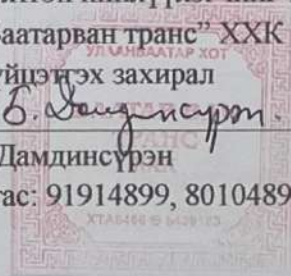 Баатарван транс” ХХК
УЛААНБААТАР ХОТ
үйцэтгэх захирал
Б. Дамдинсүрэн.
ТРАНС
Дамдинсүрэн
тас: 91914899, 8010489